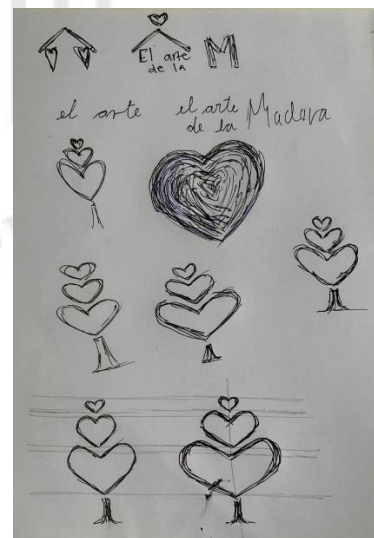 El arte
de la
M
el arte
el arte
de la Madera